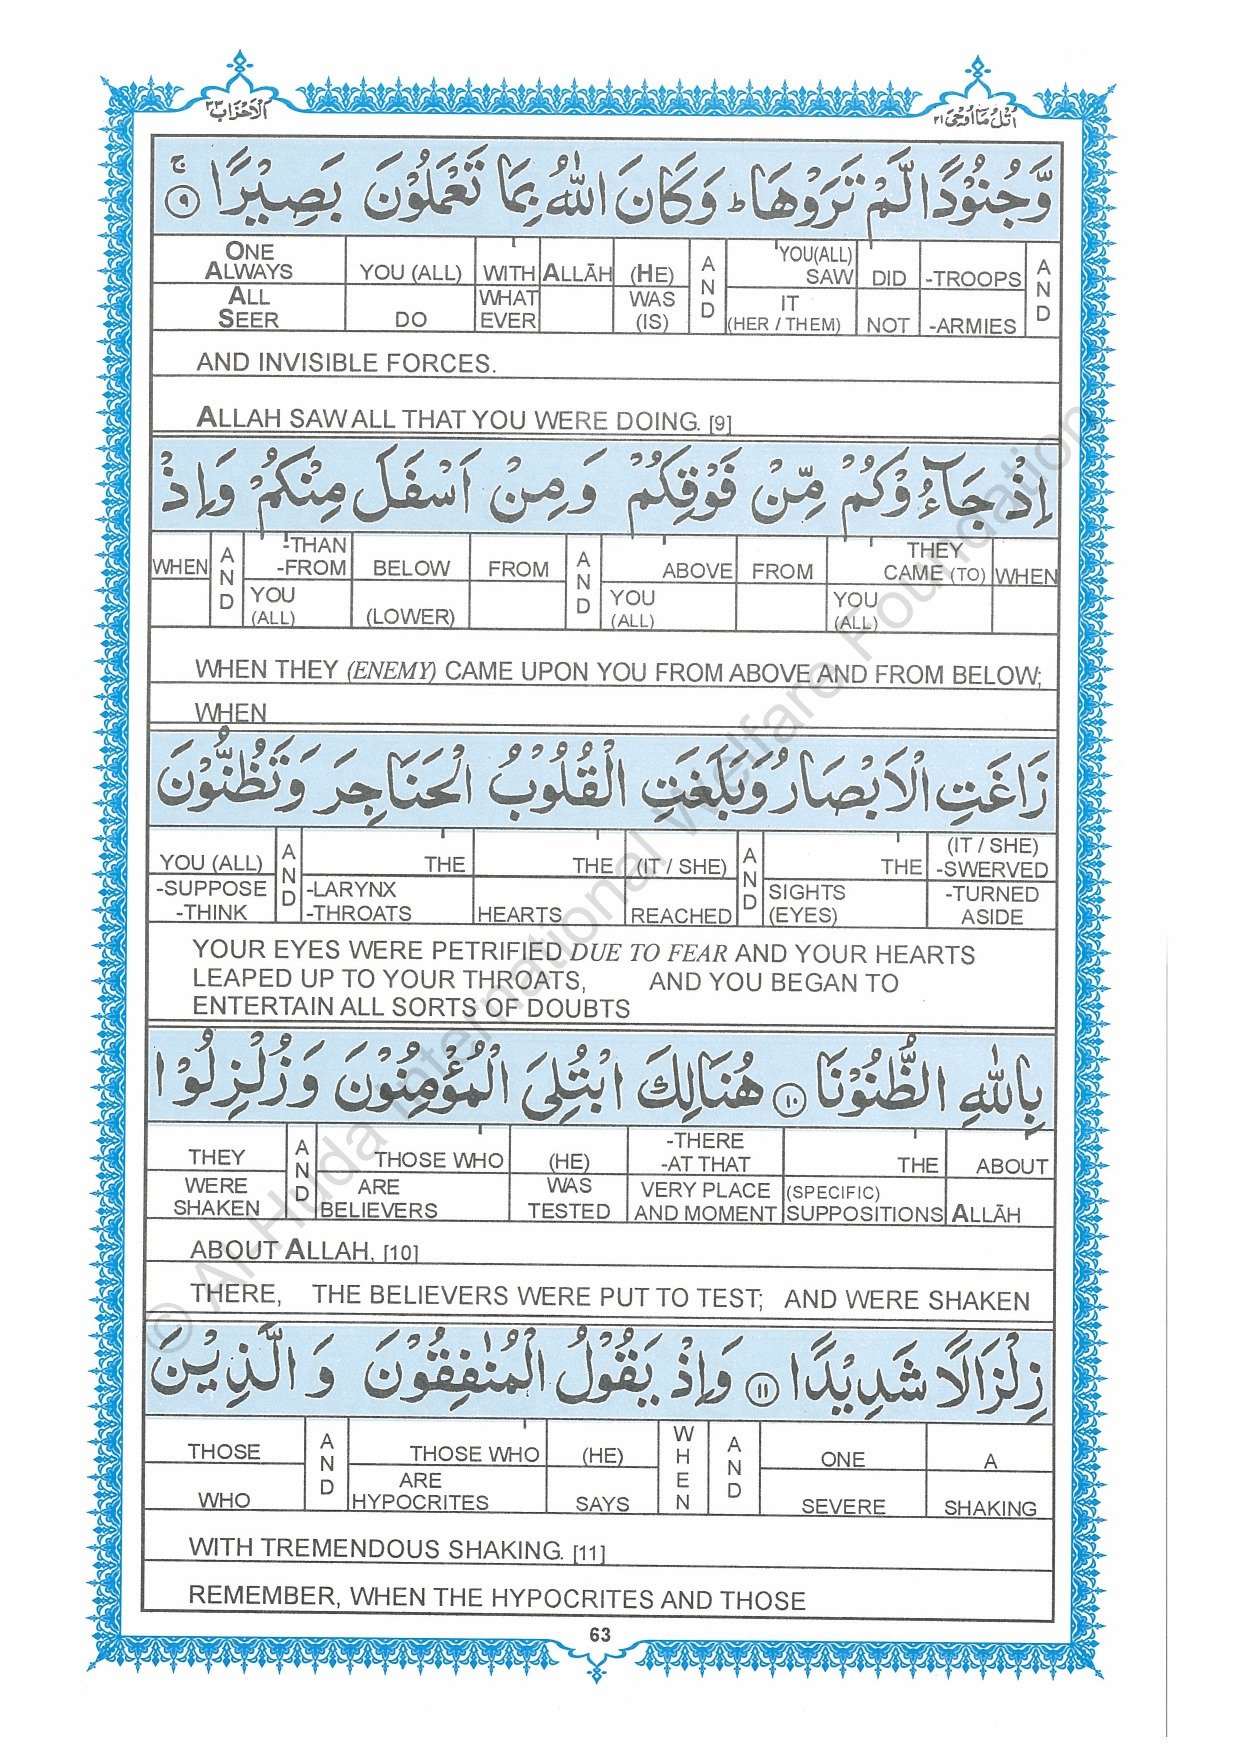 اُتْلُ مَاۤ اُوْحِیَ ٢١
الْاَحْزَاب ٣٣
وَّ جُنُوْدًا لَّمْ تَرَوْهَا ؕ وَ كَانَ اللّٰهُ بِمَا تَعْمَلُوْنَ بَصِیْرًا ۚ ﴿٩﴾
ONE YOU(ALL)
ALWAYS YOU (ALL) WITH ALLĀH (HE) AND SAW DID -TROOPS AND
ALL WHAT WAS IT
SEER DO EVER (IS) (HER / THEM) NOT -ARMIES
AND INVISIBLE FORCES.
ALLAH SAW ALL THAT YOU WERE DOING. [9]
اِذْ جَآءُوْكُمْ مِّنْ فَوْقِكُمْ وَ مِنْ اَسْفَلَ مِنْكُمْ وَ اِذْ
-THAN THEY
WHEN AND -FROM BELOW FROM AND ABOVE FROM CAME (TO) WHEN
YOU YOU YOU
(ALL) (LOWER) (ALL) (ALL)
WHEN THEY (ENEMY) CAME UPON YOU FROM ABOVE AND FROM BELOW;
WHEN
زَاغَتِ الْاَبْصَارُ وَ بَلَغَتِ الْقُلُوْبُ الْحَنَاجِرَ وَ تَظُنُّوْنَ
(IT / SHE)
YOU (ALL) AND THE THE (IT / SHE) AND THE -SWERVED
-SUPPOSE -LARYNX SIGHTS -TURNED
-THINK -THROATS HEARTS REACHED (EYES) ASIDE
YOUR EYES WERE PETRIFIED DUE TO FEAR AND YOUR HEARTS
LEAPED UP TO YOUR THROATS, AND YOU BEGAN TO
ENTERTAIN ALL SORTS OF DOUBTS
بِاللّٰهِ الظُّنُوْنَا ﴿١٠﴾ هُنَالِكَ ابْتُلِیَ الْمُؤْمِنُوْنَ وَ زُلْزِلُوْا
-THERE
THEY AND THOSE WHO (HE) -AT THAT THE ABOUT
WERE ARE WAS VERY PLACE (SPECIFIC)
SHAKEN BELIEVERS TESTED AND MOMENT SUPPOSITIONS ALLĀH
ABOUT ALLAH. [10]
THERE, THE BELIEVERS WERE PUT TO TEST; AND WERE SHAKEN
زِلْزَالًا شَدِیْدًا ﴿١١﴾ وَ اِذْ یَقُوْلُ الْمُنٰفِقُوْنَ وَ الَّذِیْنَ
THOSE AND THOSE WHO (HE) WHEN AND ONE A
ARE
WHO HYPOCRITES SAYS SEVERE SHAKING
WITH TREMENDOUS SHAKING. [11]
REMEMBER, WHEN THE HYPOCRITES AND THOSE
63
© Al-Huda International Welfare Foundation